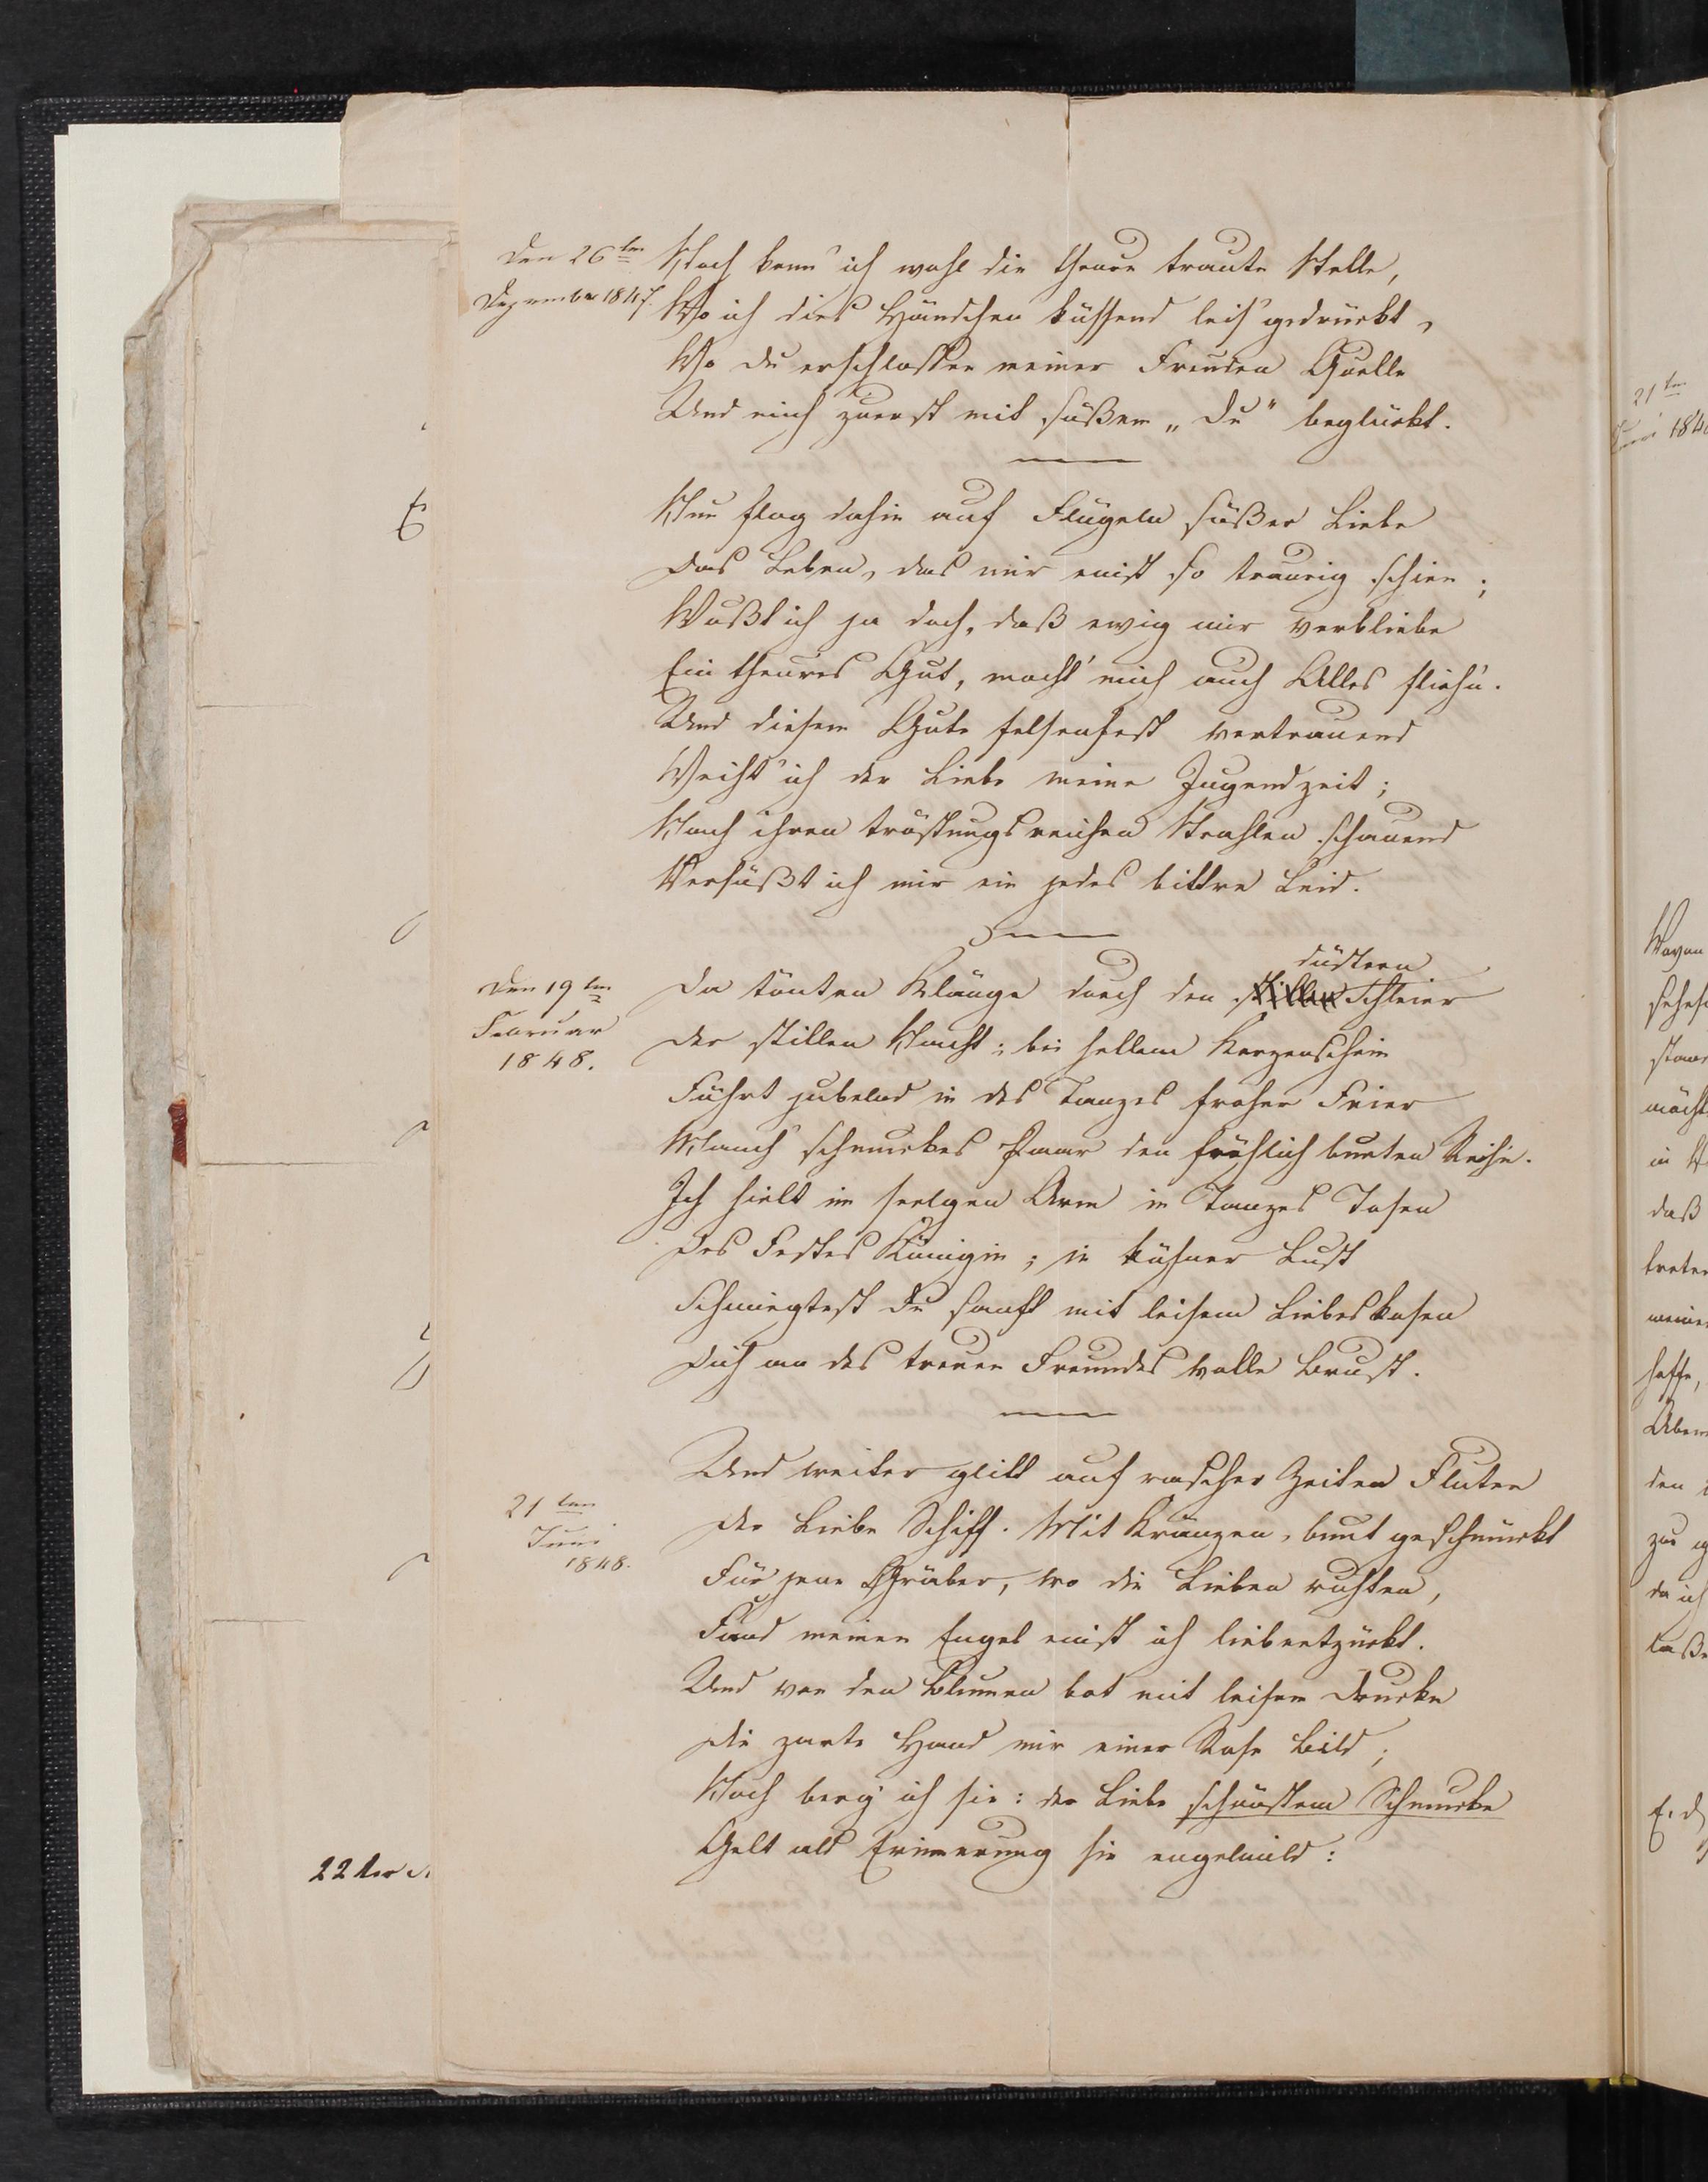 Den 26ten
Dezember 1847.
Noch kenn' ich wohl die theure traute Stelle,
Wo ich dies Händchen küssend leis' gedrückt,
Wo Du erschlossen meiner Freuden Quelle
Und mich zuerst mit süßem „Du" beglückt.
Nun flog dahin auf Flügeln süßer Liebe
Das Leben, das mir einst so traurig schien;
Wußt ich ja doch, daß ewig mir verbliebe
Ein theures Gut, mocht' mich auch Alles flieh'n.
Und diesem Gute felsenfest vertrauend
Weiht' ich der Liebe meine Jugendzeit;
Nach ihren tröstungsreichen Strahlen schauend
Versüßt ich mir ein jedes bittre Leid.
Den 19ten
Februar
1848.
düstern
Da tönten Klänge durch den stillen Schleier
Der stillen Nacht; bei hellem Kerzenschein
Führt jubelnd in des Tanzes froher Feier
Manch' schmuckes Paar den fröhlich bunten Reih'n.
Ich hielt im seelgen Arm in Tanzes Tosen
Des Festes Königin; in kühner Lust
Schmiegtest Du sanft mit leisem Liebeskosen
Dich an des treuen Freundes volle Brust.
21ten
Juni
1848.
Und weiter glitt auf rascher Zeiten Fluten
Der Liebe Schiff. Mit Kränzen, bunt geschmückt
Für jene Gräber, wo die Lieben ruhten,
Fand meinen Engel einst ich liebentzückt.
Und von den Blumen bot mit leisem Drucke
Die zarte Hand mir einer Rose Bild;
Noch berg' ich sie: der Liebe schönstem Schmucke
Gelt als Erinnerung sie engelmild:
21ten
Juni 184
Wovon
möcht
daß
treten
meine
hoffe,
den
da ich